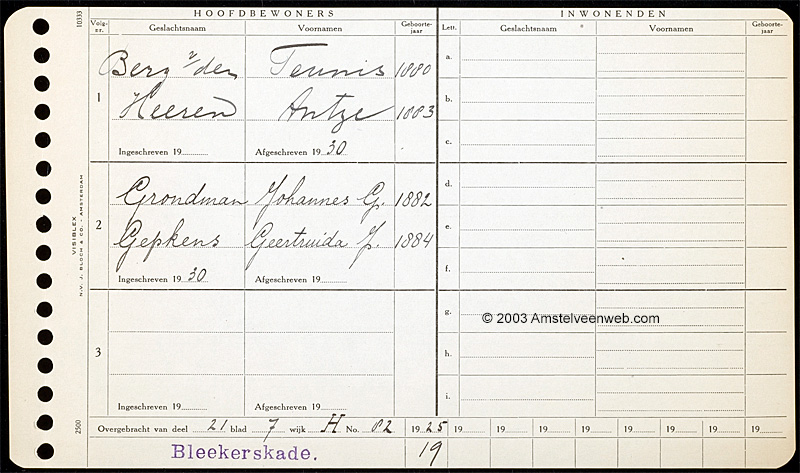 HOOFDBEWONERS INWONENDEN
Volg-nr. Geslachtsnaam Voornamen Geboorte-jaar Lett. Geslachtsnaam Voornamen Geboorte-jaar
10333
Berg v/den Teunis 1880 a.
1 Heeren Antze 1883 b.
c.
Ingeschreven 19 Afgeschreven 19 30
Grondman Johannes G. 1882 d.
2 Gepkens Geertruida J. 1884 e.
f.
Ingeschreven 19 30 Afgeschreven 19
g.
© 2003 Amstelveenweb.com
3 h.
i.
Ingeschreven 19 Afgeschreven 19
VISIBLEX
N.V. J. BLOCH & CO. - AMSTERDAM
2500
Overgebracht van deel 21 blad 7 wijk H No. 82 19 25 19 19 19 19 19 19 19 19
Bleekerskade. 19